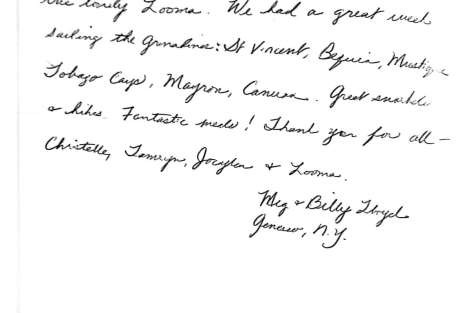 the lovely Looma. We had a great week
sailing the Grenadines: St Vincent, Bequia, Mustique
Tobago Cays, Mayron, Canuan. Great snorkel
& hikes. Fantastic meals! Thank you for all –
Christelle, Tamryn, Jocylen & Looma.
Meg & Billy Lloyd
Geneseo, N.Y.